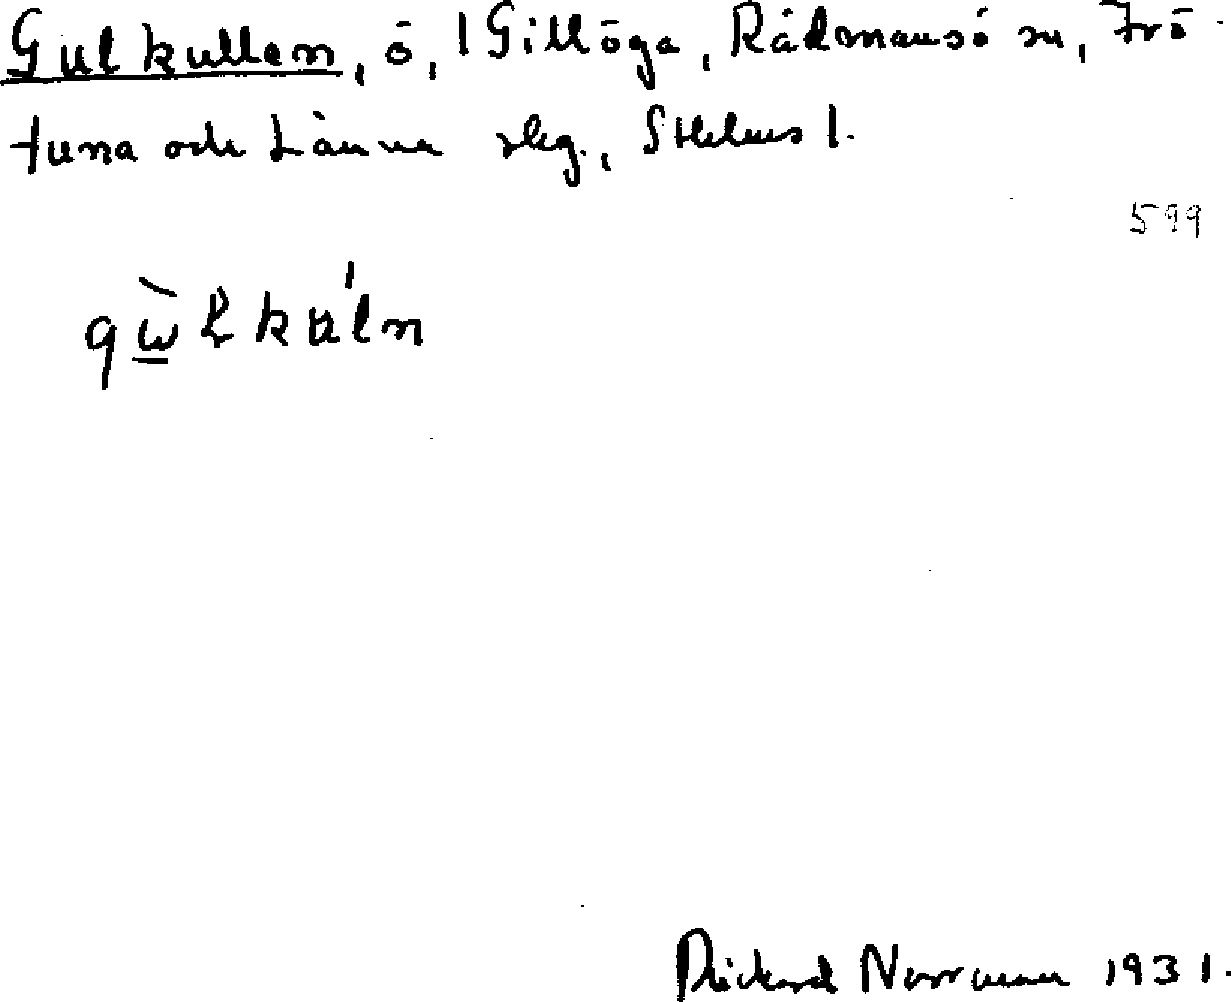 Gulkullen, ö, l Gillöga, Rådmansö sn, Frö-
tuna och Länna skg., Sthlms l.
599
Rickard Norrman 1931.